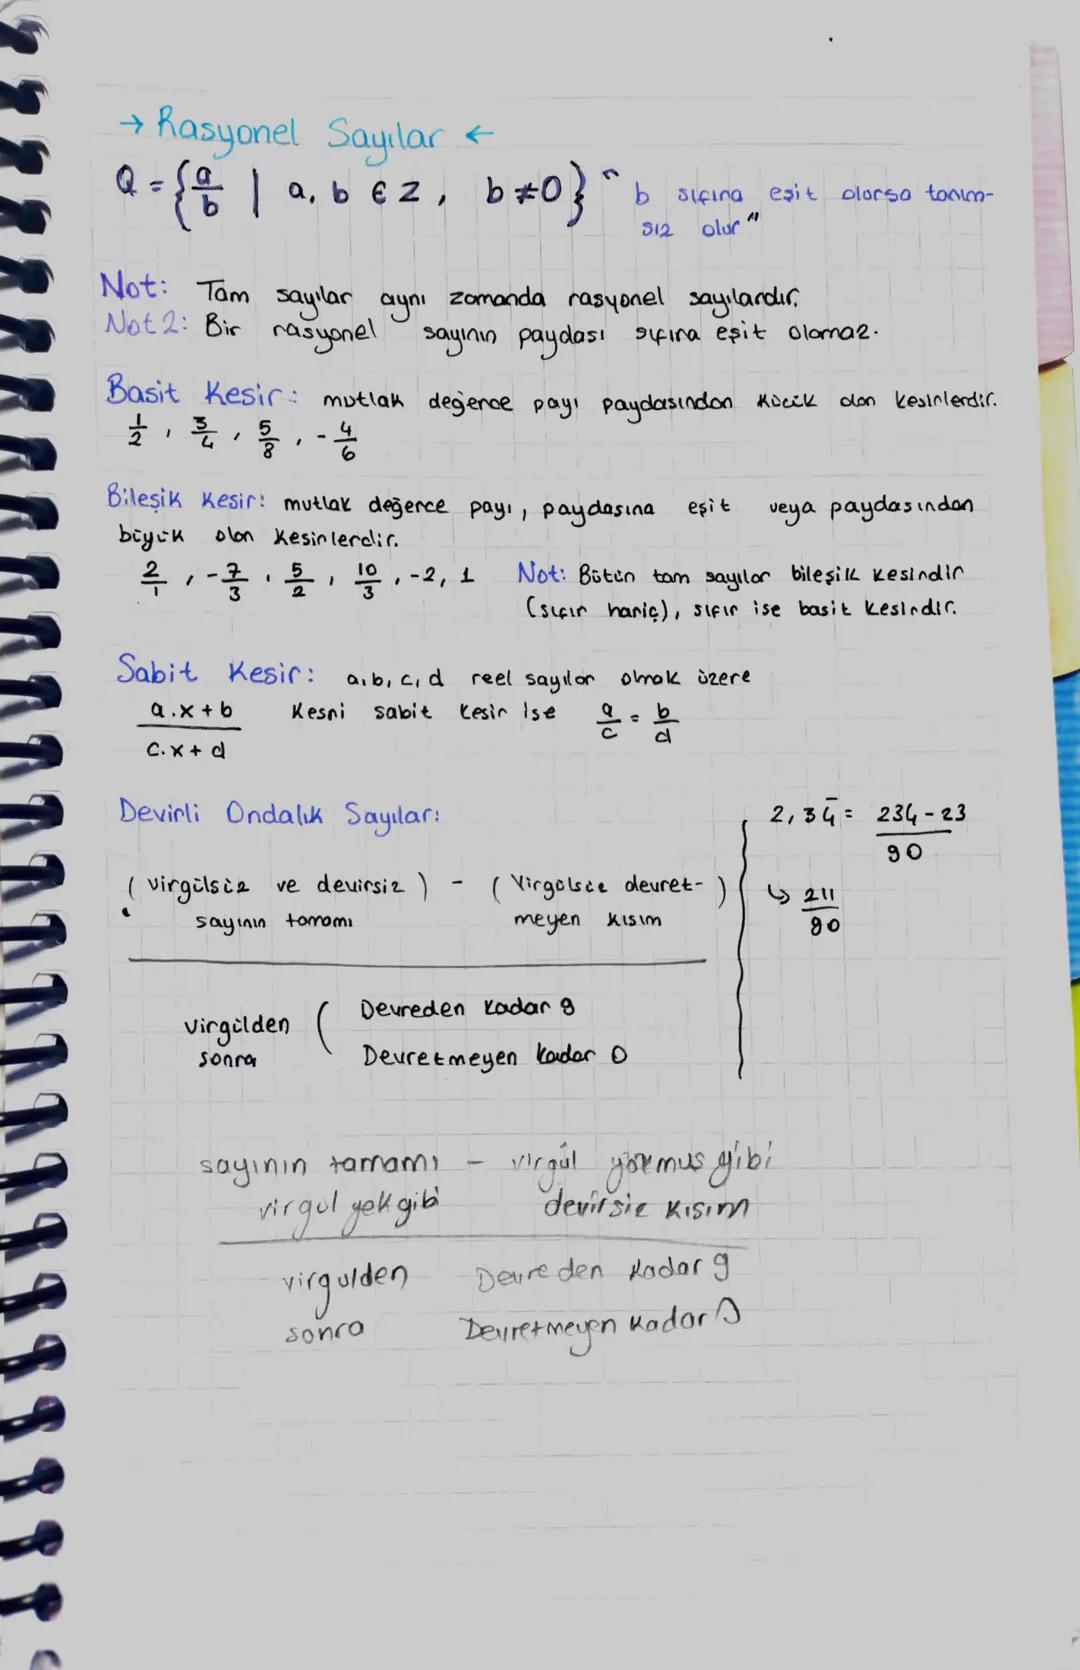 → Rasyonel Sayılar ←
Q = {a/b | a, b ∈ Z, b ≠ 0} "b sıfıra eşit olursa tanım-
sız olur"
Not: Tam sayılar aynı zamanda rasyonel sayılardır.
Not 2: Bir rasyonel sayının paydası sıfıra eşit olamaz.
Basit Kesir: mutlak değerce payı paydasından küçük olan kesirlerdir.
1/2, 3/4, 5/8, -4/6
Bileşik Kesir: mutlak değerce payı, paydasına eşit veya paydasından
büyük olan kesirlerdir.
2/1, -7/3, 5/2, 10/3, -2, 1
Not: Bütün tam sayılar bileşik kesirdir
(sıfır hariç), sıfır ise basit kesirdir.
Sabit Kesir: a, b, c, d reel sayılar olmak üzere
a.x + b / c.x + d kesri sabit kesir ise a/c = b/d
Devirli Ondalık Sayılar:
(virgülsüz ve devirsiz) - (Virgülsüz devret-)
sayının tamamı meyen kısım
virgülden ( Devreden kadar 9
sonra Devretmeyen kadar 0
2,34̅ = 234 - 23 / 90
↳ 211 / 90
sayının tamamı - virgül yokmuş gibi
virgül yok gibi devirsiz kısım
virgülden Devreden kadar 9
sonra Devretmeyen kadar 0